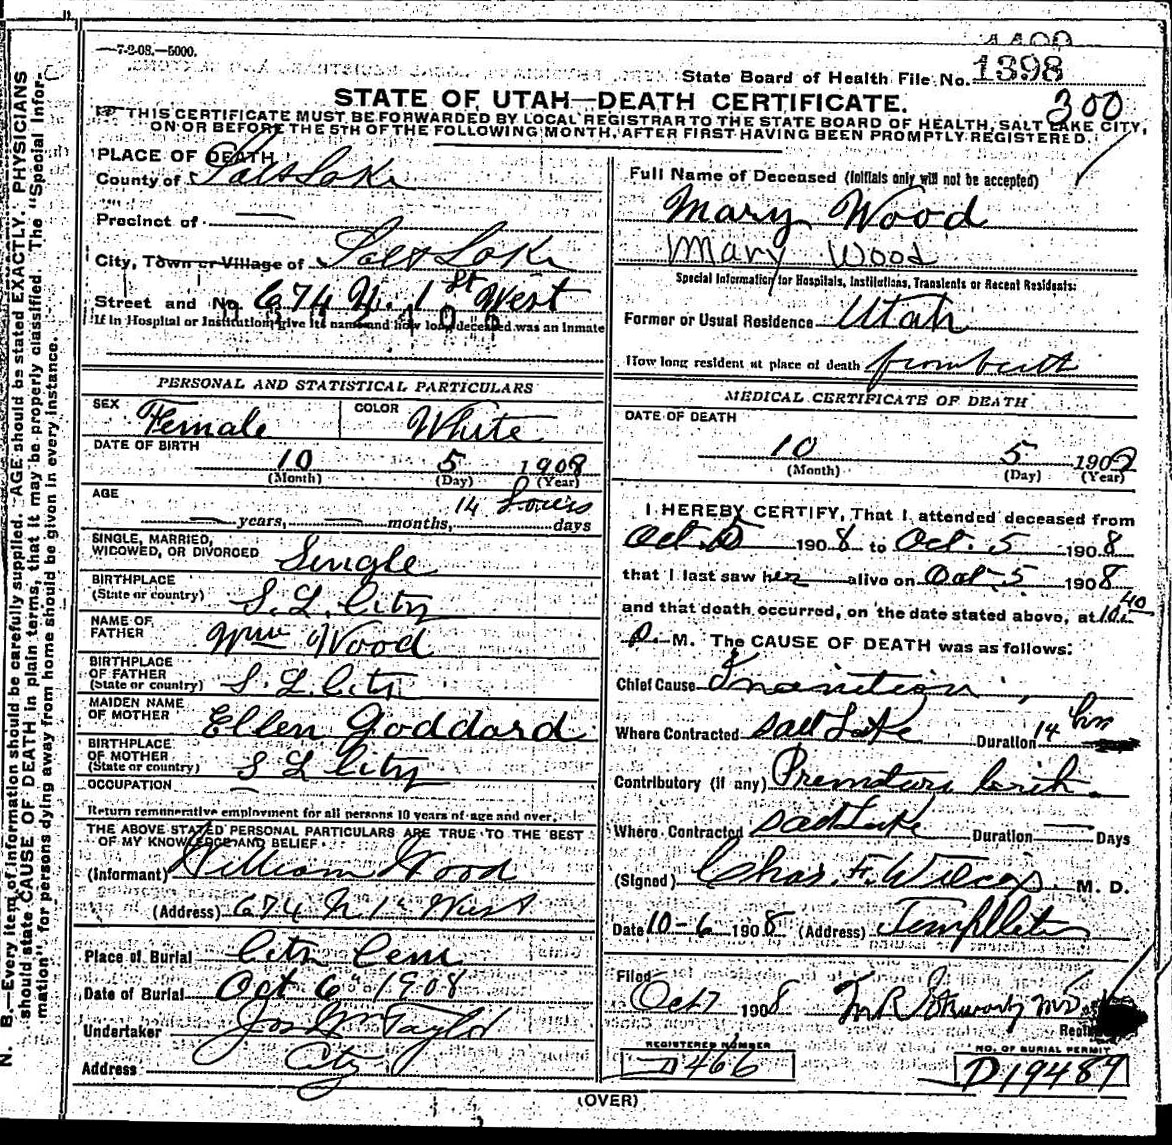 —7-2-08.—5000.
State Board of Health File No. 1398
300
STATE OF UTAH—DEATH CERTIFICATE.
THIS CERTIFICATE MUST BE FORWARDED BY LOCAL REGISTRAR TO THE STATE BOARD OF HEALTH, SALT LAKE CITY,
ON OR BEFORE THE 5TH OF THE FOLLOWING MONTH, AFTER FIRST HAVING BEEN PROMPTLY REGISTERED.
N. B.—Every item of information should be carefully supplied. AGE should be stated EXACTLY. PHYSICIANS
should state CAUSE OF DEATH in plain terms, that it may be properly classified. The "Special Infor-
mation" for persons dying away from home should be given in every instance.
PLACE OF DEATH
County of Salt Lake
Precinct of —
City, Town or Village of Salt Lake
Street and No. 674 N. 1st West
If in Hospital or Institution, give its name and how long deceased was an inmate
PERSONAL AND STATISTICAL PARTICULARS
SEX Female COLOR White
DATE OF BIRTH
10 5 1908
(Month) (Day) (Year)
AGE 14 hours
— years, — months, days
SINGLE, MARRIED,
WIDOWED, OR DIVORCED Single
BIRTHPLACE
(State or country) S. L. City
NAME OF
FATHER Wm Wood
BIRTHPLACE
OF FATHER
(State or country) S. L. City
MAIDEN NAME
OF MOTHER Ellen Goddard
BIRTHPLACE
OF MOTHER
(State or country) S L City
OCCUPATION —
Return remunerative employment for all persons 10 years of age and over.
THE ABOVE STATED PERSONAL PARTICULARS ARE TRUE TO THE BEST
OF MY KNOWLEDGE AND BELIEF.
(Informant) William Wood
(Address) 674 N 1st West
Place of Burial City Cem
Date of Burial Oct 6" 1908
Undertaker Jos Wm Taylor
Address City
Full Name of Deceased (Initials only will not be accepted)
Mary Wood
Mary Wood
Special Information for Hospitals, Institutions, Transients or Recent Residents:
Former or Usual Residence Utah
How long resident at place of death from birth
MEDICAL CERTIFICATE OF DEATH
DATE OF DEATH
10 5 1908
(Month) (Day) (Year)
I HEREBY CERTIFY, That I attended deceased from
Oct. 5 1908 to Oct. 5 1908
that I last saw her alive on Oct 5 1908
and that death occurred, on the date stated above, at 10.40
P. M. The CAUSE OF DEATH was as follows:
Chief Cause Inanition
Where Contracted Salt Lake Duration 14 hrs
Contributory (if any) Premature birth.
Where Contracted Salt Lake Duration — Days
(Signed) Chas. F. Wilcox M. D.
Date 10-6 1908 (Address) Templeton
Filed
Oct 7 1908
REGISTERED NUMBER
D 466
NO. OF BURIAL PERMIT
D 19489
(OVER)